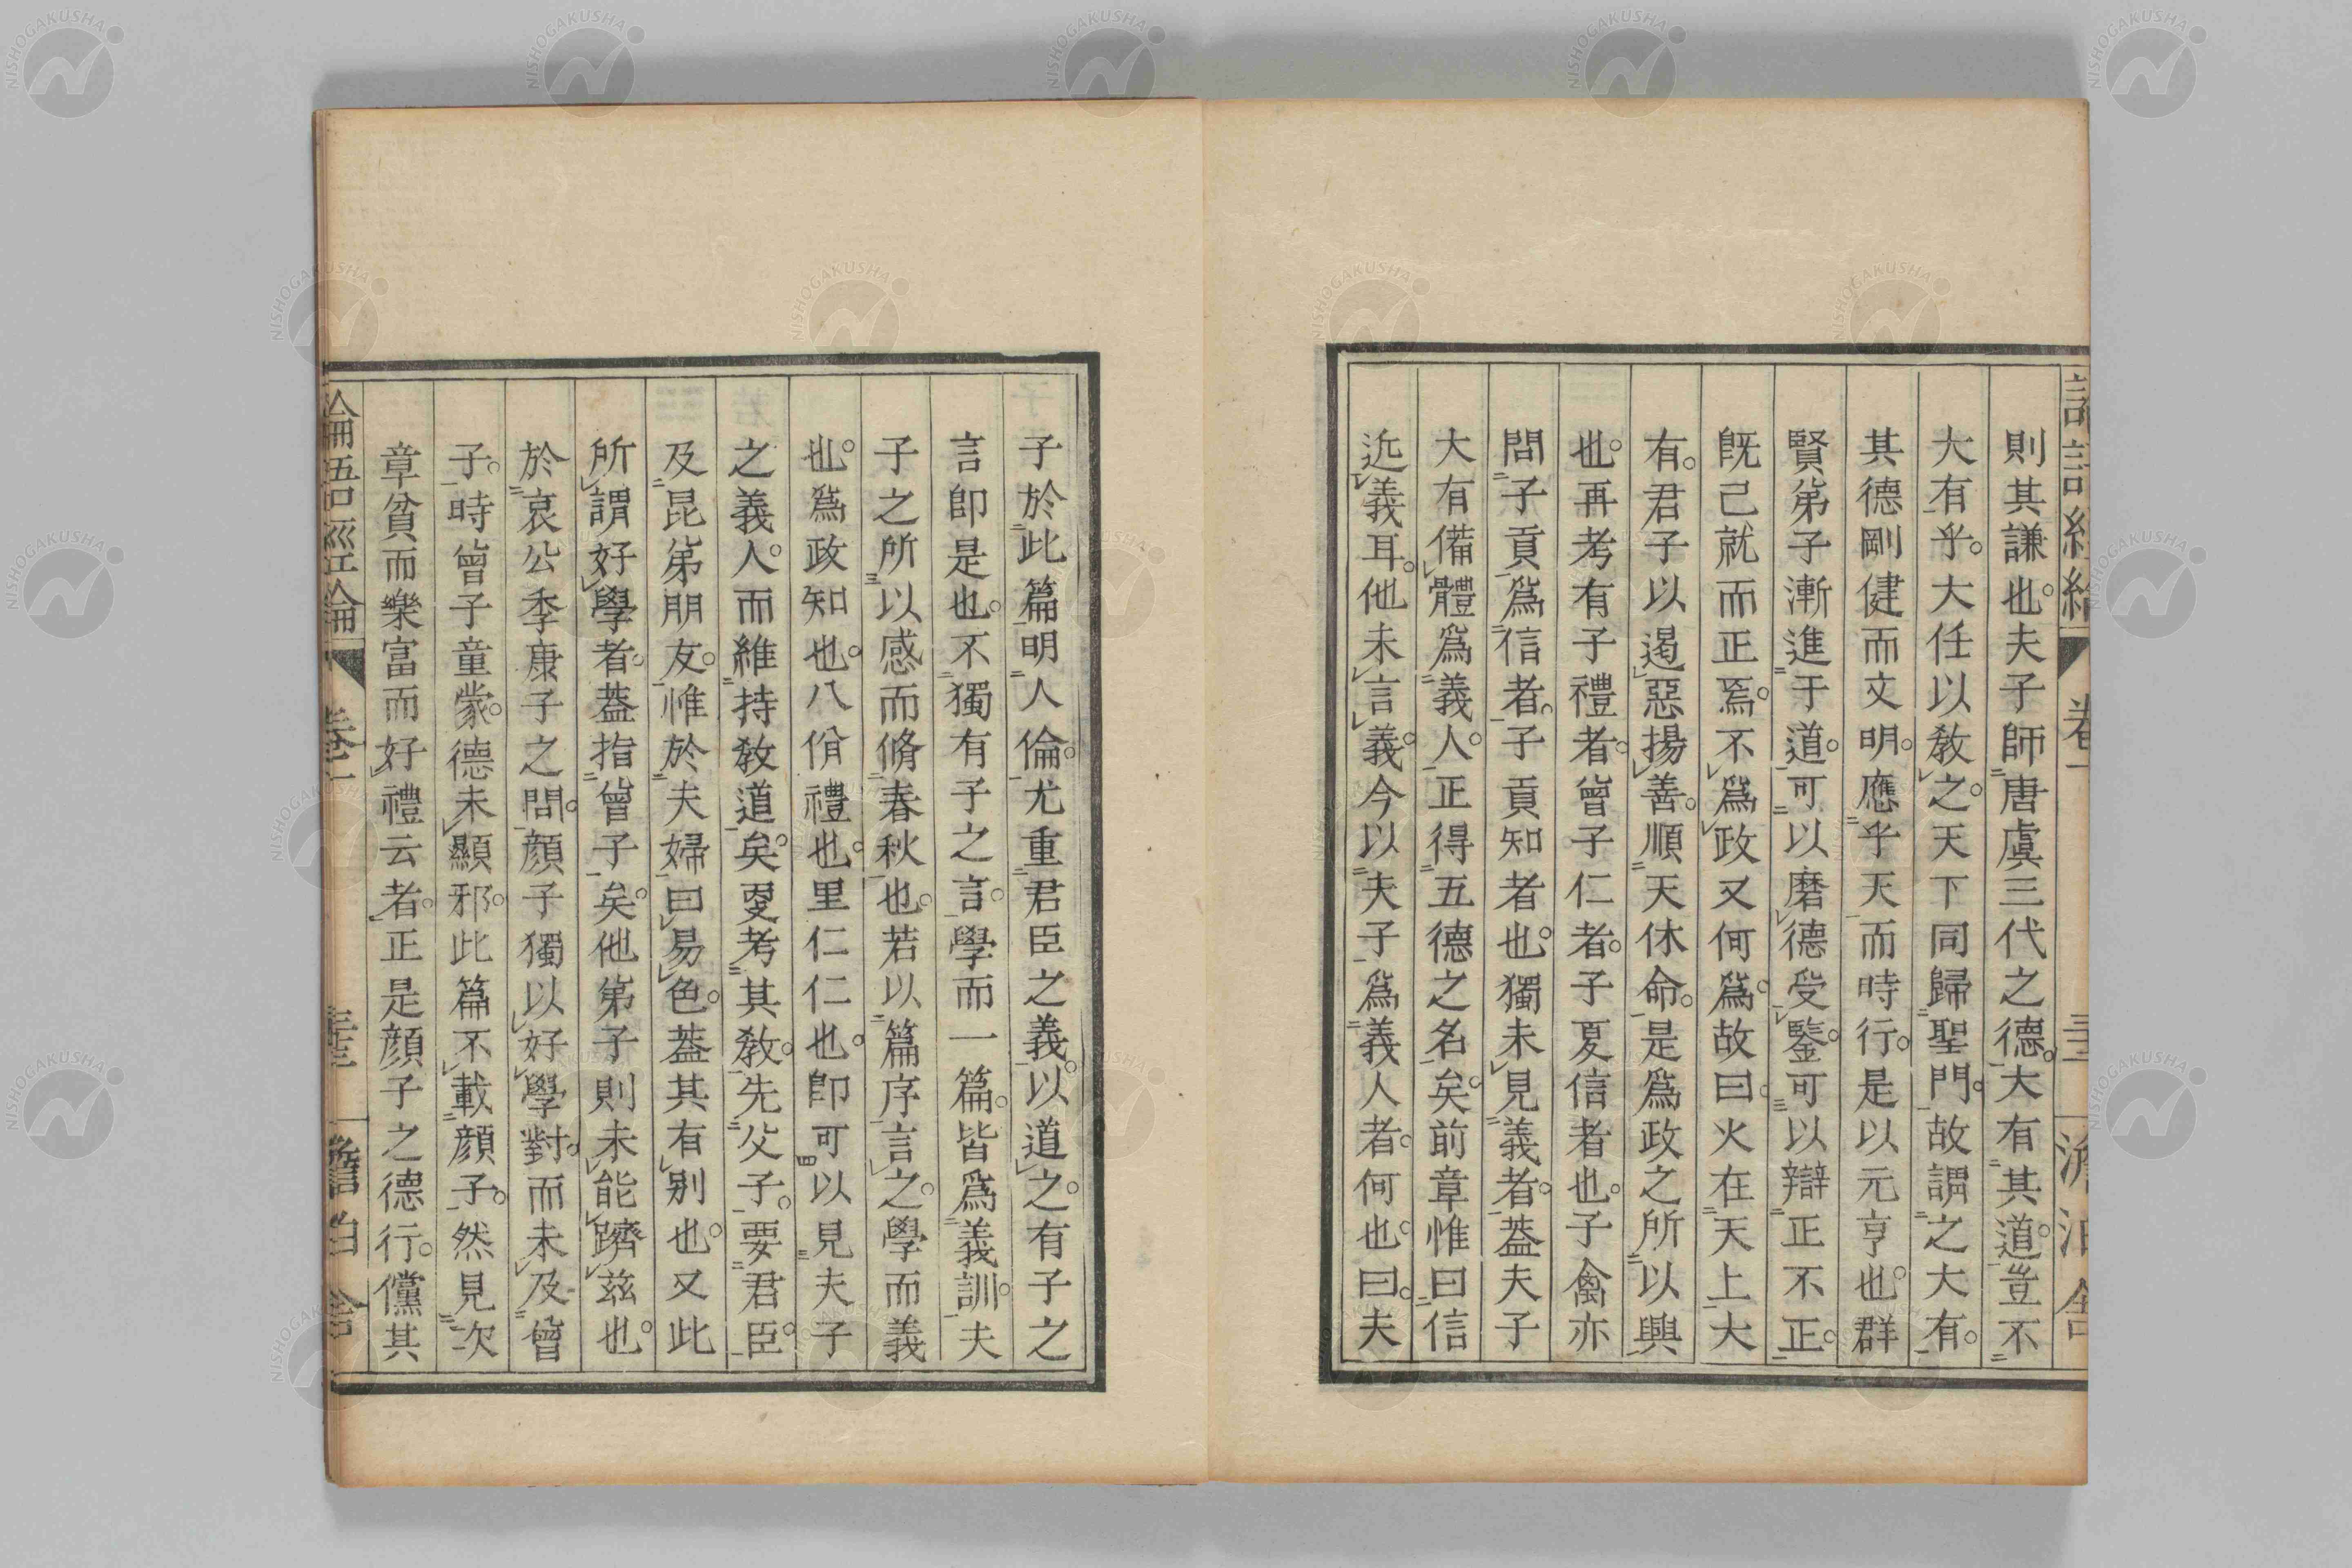 則其謙也。夫子師唐虞三代之德。大有其道。豈不
大有乎。大任以教之。天下同歸聖門。故謂之大有。
其德剛健而文明。應乎天而時行。是以元亨也。群
賢弟子漸進于道。可以磨德受鑒。可以辯正不正。
既已就而正焉。不爲政又何爲。故曰火在天上大
有。君子以遏惡揚善。順天休命。是爲政之所以興
也。再考有子禮者。曾子仁者。子夏信者也。子禽亦
問子貢爲信者。子貢知者也。獨未見義者。蓋夫子
大有備體爲義人。正得五德之名矣。前章惟曰信
近義耳。他未言義。今以夫子爲義人者。何也。曰。夫
子於此篇明人倫。尤重君臣之義。以道之。有子之
言卽是也。不獨有子之言。學而一篇。皆爲義訓。夫
子之所以感而脩春秋也。若以篇序言之。學而義
也。爲政知也。八佾禮也。里仁仁也。卽可以見夫子
之義人。而維持教道矣。更考其教。先父子。要君臣。
及昆弟朋友。惟於夫婦曰易色。蓋其有別也。又此
所謂好學者。蓋指曾子矣。他弟子則未能躋茲也。
於哀公季康子之問。顔子獨以好學對。而未及曾
子。時曾子童蒙。德未顯邪。此篇不載顔子。然見次
章貧而樂富而好禮云者。正是顔子之德行。儻其
論語經綸
卷一
NISHOGAKUSHA